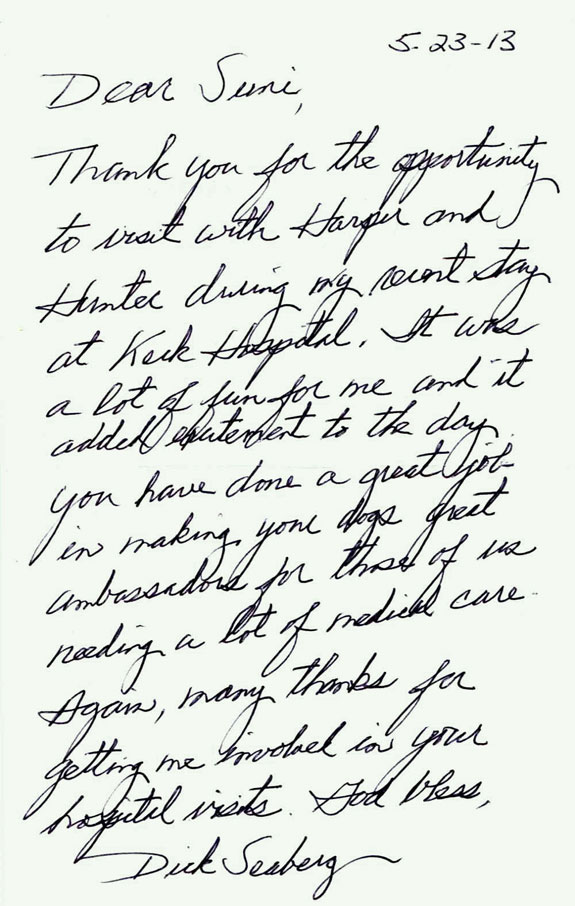 5-23-13
Dear Suni,
Thank you for the opportunity
to visit with Harper and
Hunter during my recent stay
at Keck Hospital. It was
a lot of fun for me and it
added excitement to the day.
You have done a great job
in making your dogs great
ambassadors for those of us
needing a lot of medical care.
Again, many thanks for
getting me involved in your
hospital visits. God bless,
Dick Seaberg